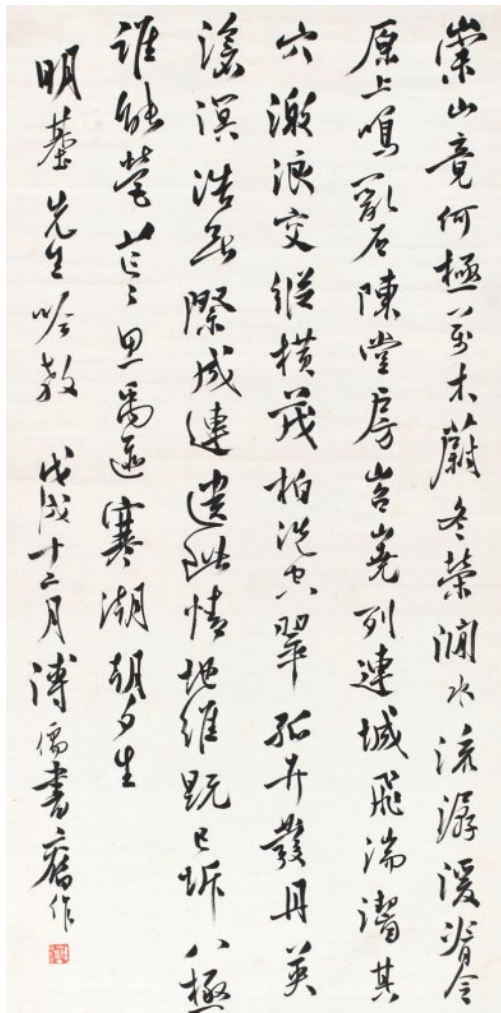 崇山竟何極萬木蔚冬榮澗水流潺湲脊令
原上鳴亂石陳堂房岧嶤列連城飛湍其
穴激浪交縱橫茂柏洗空翠孤卉發丹英
滄溟浩無際成連遺情地維既已坼八極
誰能營茫〻思禹迹寒潮朝夕生
明基先生吟教 戊戌十二月溥儒書舊作